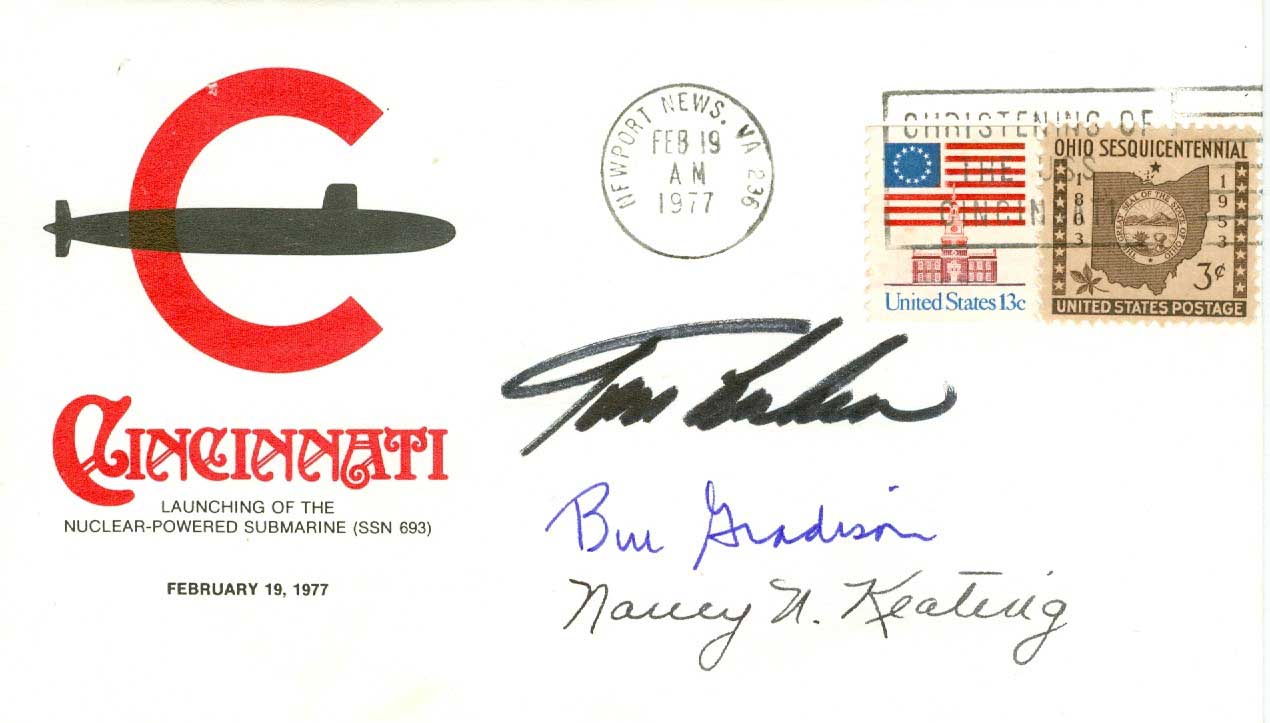 NEWPORT NEWS. VA 236
FEB 19
AM
1977
CHRISTENING OF
THE USS
CINCINNATI
OHIO SESQUICENTENNIAL
1803
1953
THE GREAT SEAL OF THE STATE OF OHIO
3¢
UNITED STATES POSTAGE
United States 13c
CINCINNATI
LAUNCHING OF THE
NUCLEAR-POWERED SUBMARINE (SSN 693)
FEBRUARY 19, 1977
Bill Gradison
Nancy N. Keating